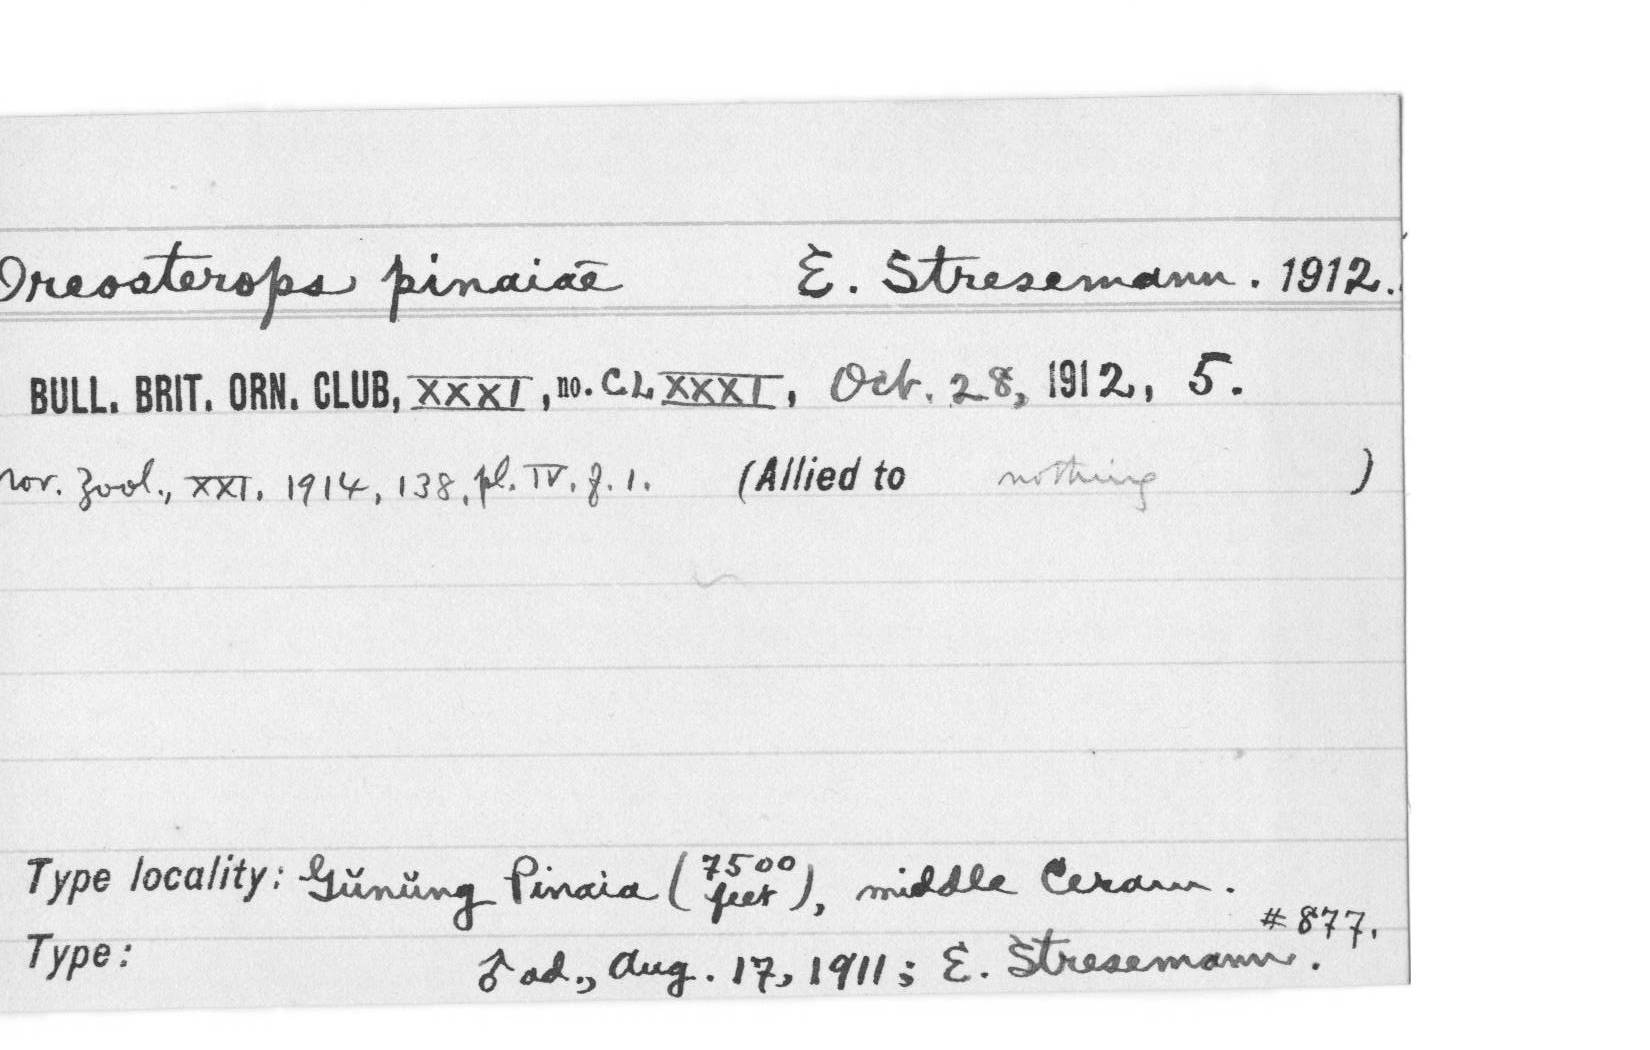 Oreosterops pinaiae E. Stresemann. 1912.
BULL. BRIT. ORN. CLUB, XXXI, no. CLXXXI, Oct. 28, 1912, 5.
Nov. Zool., XXI. 1914, 138, pl. IV. f. 1. (Allied to nothing )
Type locality: Gŭnŭng Pinaia (7500 feet), middle Ceram.
#877.
Type: ♂ ad., Aug. 17, 1911; E. Stresemann.